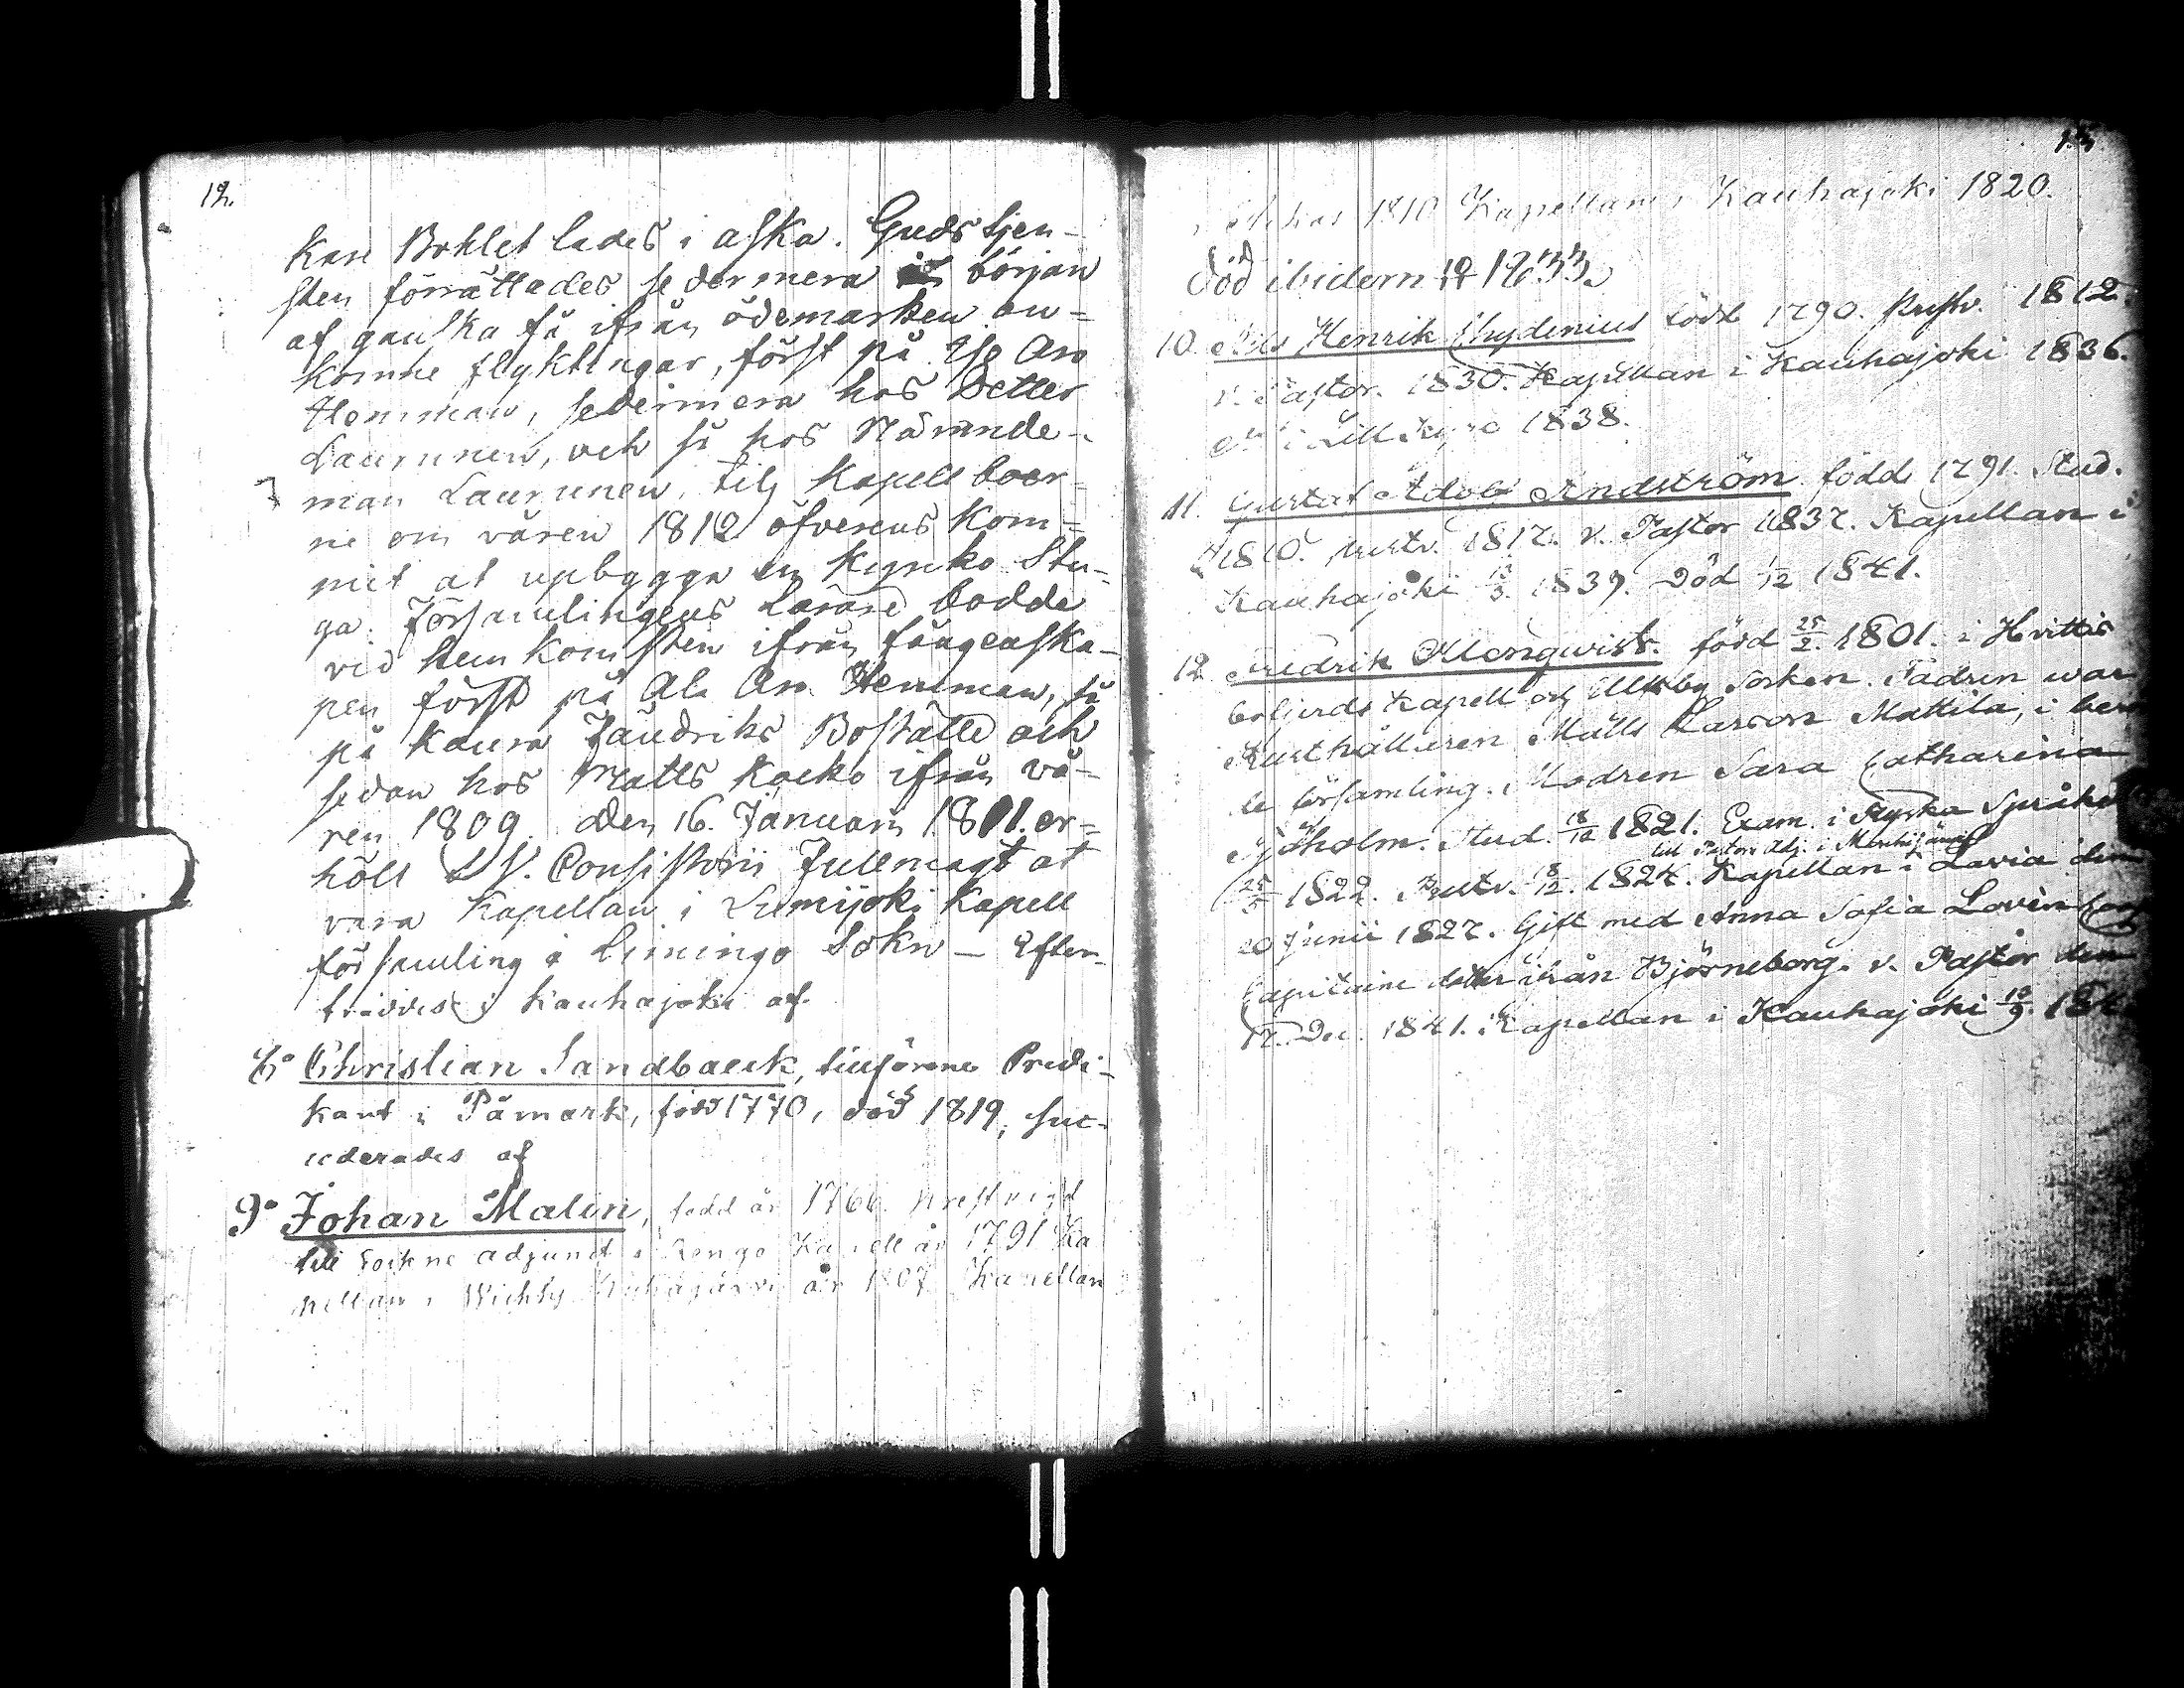 12.
kare Bohlet lades i aska. Gudstjen-
sten förrättades sedermera i början
af ganska få ifrån ödemarken an-
komne flyktingar, först på Yli Aro
Hemman, sedermera hos Petter
Laurunen, och så hos Nämnde-
man Laurunen, tils Kapellboer-
ne om våren 1812 öfverens kom-
mit at upbygga en Kyrko Stu-
ga. Församlingens Lärare bodde
vid hemkomsten ifrån fångenska-
pen först på Ala Aro Hemman, så
på Kaura Jaudriks Boställe och
sedan hos Matts Koski ifrån vå-
ren 1809. den 16. Januarii 1811. er-
höll V. Consistorii Fullmagt at
vara Kapellan i Lumijoki Kapell
församling i Limingo Sokn — Efter-
träddes i Kauhajoki af
8° Christian Sandbaeck, tillförene Predi-
kant i Påmark, född 1770, död 1819, suc-
cederades af
9° Johan Malin, född år 1766. prestvigd
till Sockne adjunct i Kapell år 1791 Ka
pellan i Wichty år 1807 Kapellan
13
1810 Kapellan i Kauhajoki 1820.
död ibidem 1833.
10. Nils Henrik Chydenius född 1790. Prestv. 1812.
v. Pastor. 1830. Kapellan i Kauhajoki 1836.
i Lill Kyro 1838.
11. Gustaf Adolf Lindström född 1791. Stud.
1810. prestv. 1817. v. Pastor 1837. Kapellan i
Kauhajoki 1839. Död 1/12 1841.
12. Fredrik Ellenqwist. född 25/2. 1801. i Hvittis
Kapell och Ulfsby Socken. Fadren war
Rusthållaren Matts Larson Mattila, i
te församling. Modren Sara Catharina
Sjöholm. Stud. 1821. Exam. i Ryska Språket
till Pastors Adj. i
25/5 1822. Prestv. 18/12. 1824. Kapellan i Lavia den
20 Junii 1827. Gift med Anna Sofia Lovén
Capitaine dotter ifrån Björneborg. v. Pastor den
17. Dec. 1841. Kapellan i Kauhajoki